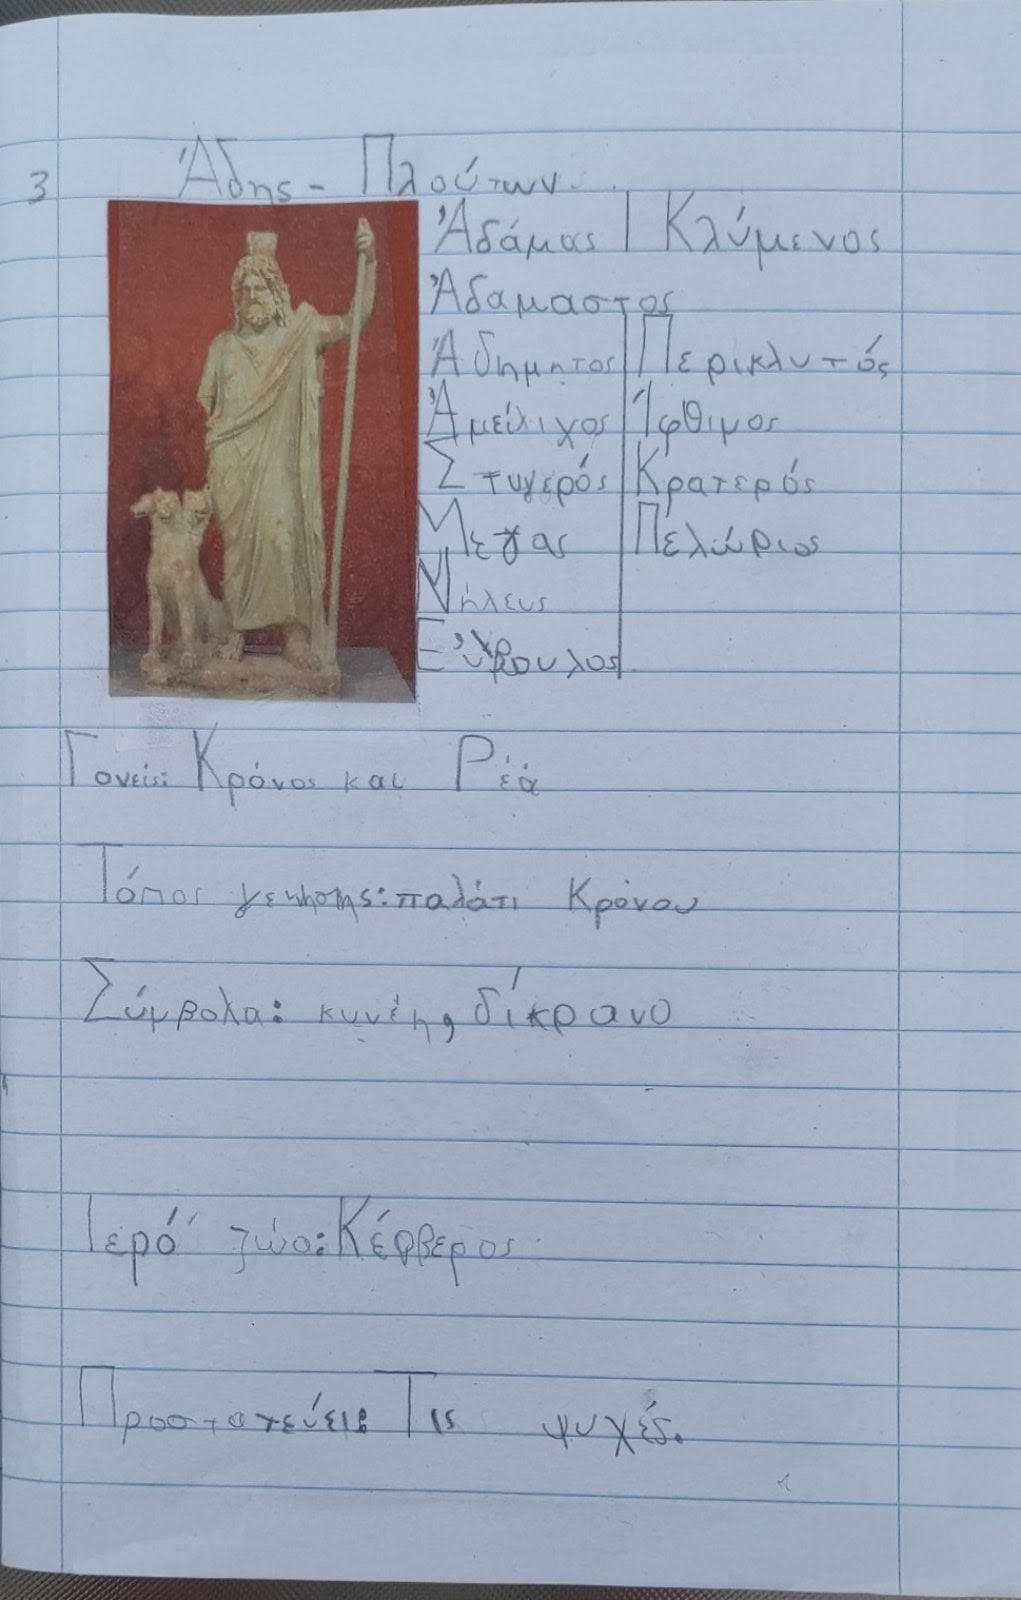 3 Άδης - Πλούτων
Ἀδάμας | Κλύμενος
Ἀδαμαστος
Ἀδημητος | Περικλυτός
Ἀμείλιχος | Ίφθιμος
Στυγερός | Κρατερός
Μεγας | Πελώριος
Νήλευς
Εὔβουλος
Γονείς: Κρόνος και Ρέα
Τόπος γεννησης: παλάτι Κρόνου
Σύμβολα: κυνέη, δίκρανο
Ιερό ζώο: Κέρβερος
Προστατεύει: Τις ψυχές.